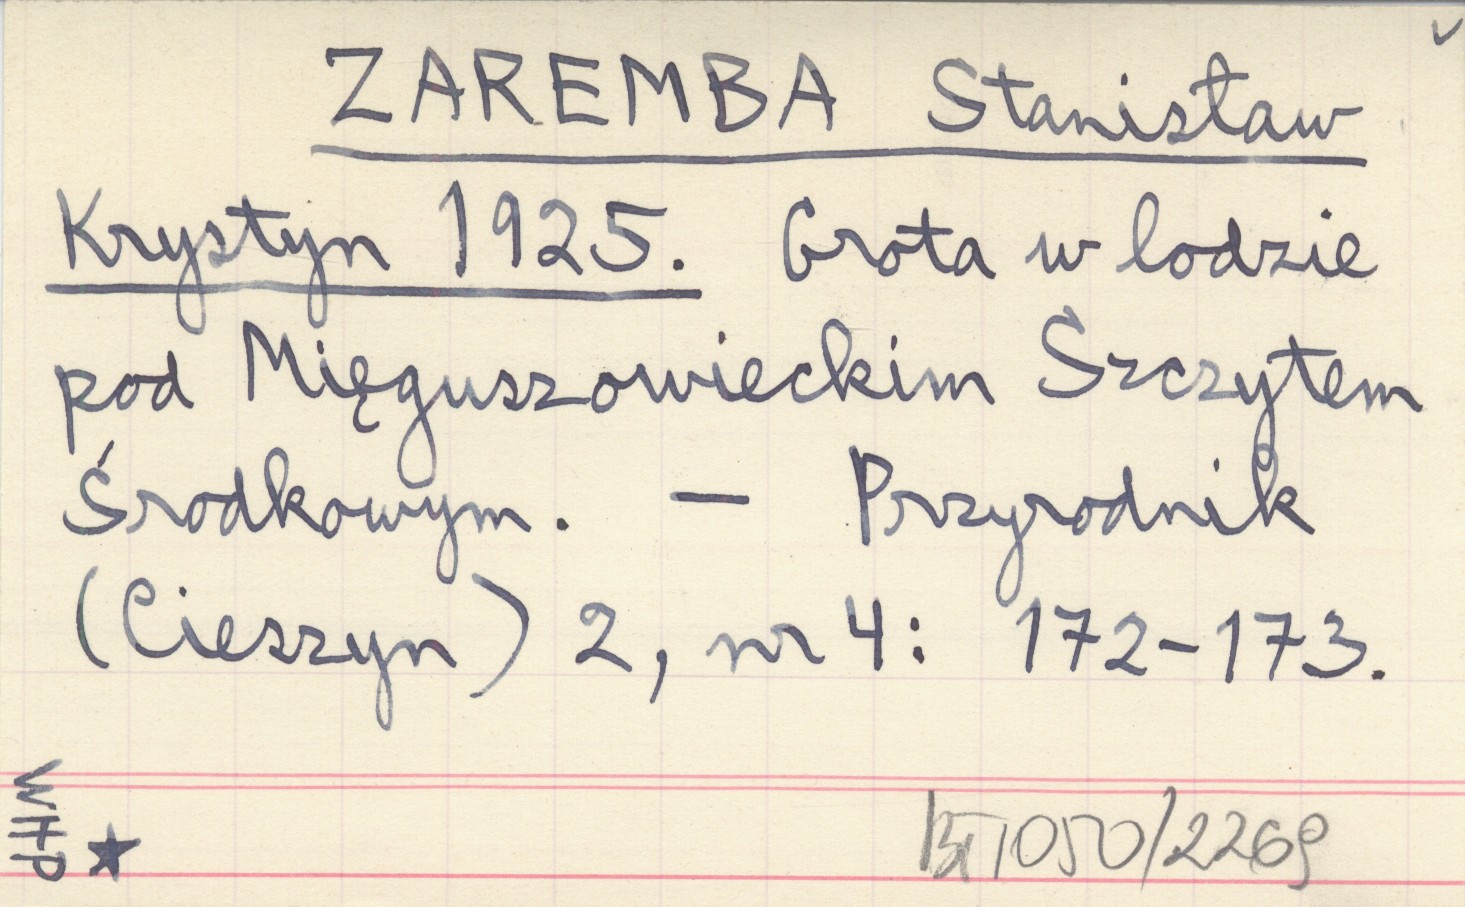 ZAREMBA Stanisław
Krystyn 1925. Grota w lodzie
pod Mięguszowieckim Szczytem
Środkowym. — Przyrodnik
(Cieszyn) 2, nr 4: 172-173.
1050/2269